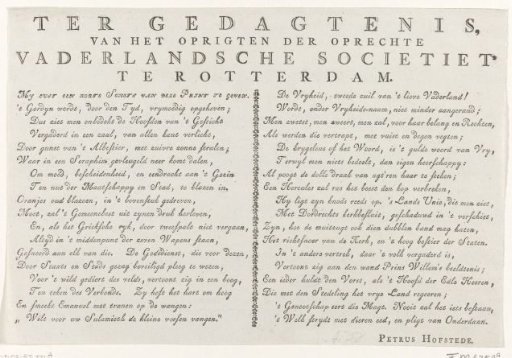 TER GEDAGTENIS,
VAN HET OPRIGTEN DER OPRECHTE
VADERLANDSCHE SOCIETEIT
TE ROTTERDAM.
My voor een korte Schets van deze Prent te geven.
't Gordyn wordt, door den Tyd, vrymoedig opgeheven;
Dus ziet men middelste de Hoofden van 't Gesticht
Vergaderd in een zaal, van allen kant verlicht,
Door gunst van 't Albestier, met zuivre zonne stralen;
Waar in een Seraphin gevleugeld neer komt dalen,
Om moed, bescheidenheid, en eendracht aan 't Gezin
Tan nut der Maatschappy en Stad, te blazen in.
Oranjes oud blazoen, in 't bovenstuk gedreven,
Moet, zal 't Gemeenebest uit zynen druk herleven,
En, als het Grieksche ryk, door tweespalt niet vergaan,
Altyd in 't middenpunt der zeven Wapens staan,
Gesteund aan elk van die. De Godsdienst, die voor dezen,
Door Staats en Stads gezag beveiligd pleeg te wezen,
Voor 't wild gediert des velds, vertoont zig in een boog,
Ten teken des Verbonds. Zy heft het hart om hoog
En smeekt Emanuel met tranen op de wangen:
„Wilt voor uw Sulamieth de kleine vossen vangen."
De Vryheid, tweede zuil van 't lieve Vaderland!
Wordt, onder Vryheids-naam, niet minder aangerand;
Men zweet, men zwoert, men zal, voor haar belang en Rechten,
Als werden die vertrapt, met vuist en degen vegten;
De bryzeloos of het Woord, is 't gulde woord van Vry,
Terwyl men niets bedoelt, dan eigen heerschappy:
Al poogt de dolle draak van agt'ren haar te stelen;
Een Hercules zal ras het beest den kop verbreken,
Hy ligt zyn knots reeds op. 's Lands Unie, die men ziet,
Met Dordrechts kerkbesluit, geschonden in 't verschiet,
Zyn, hoe de muitzugt ook dien dubblen band mag haten,
Het richtsnoer van de Kerk, en 't hoog bestier der Staten.
In 't anders vertrek, daar 't volk vergaderd is,
Vertoont zig aan den wand Prins Willem's beeldtenis;
Een ieder huldt den Vorst, als 't Hoofd der Edle Heeren,
Die met den Stedeling het vrye Land regeeren;
't Genootschap eere die Magt. Nooit zal het iets bestaan,
't Welk strydt met dieren eed, en pligt van Onderdaan.
PETRUS HOFSTEDE.